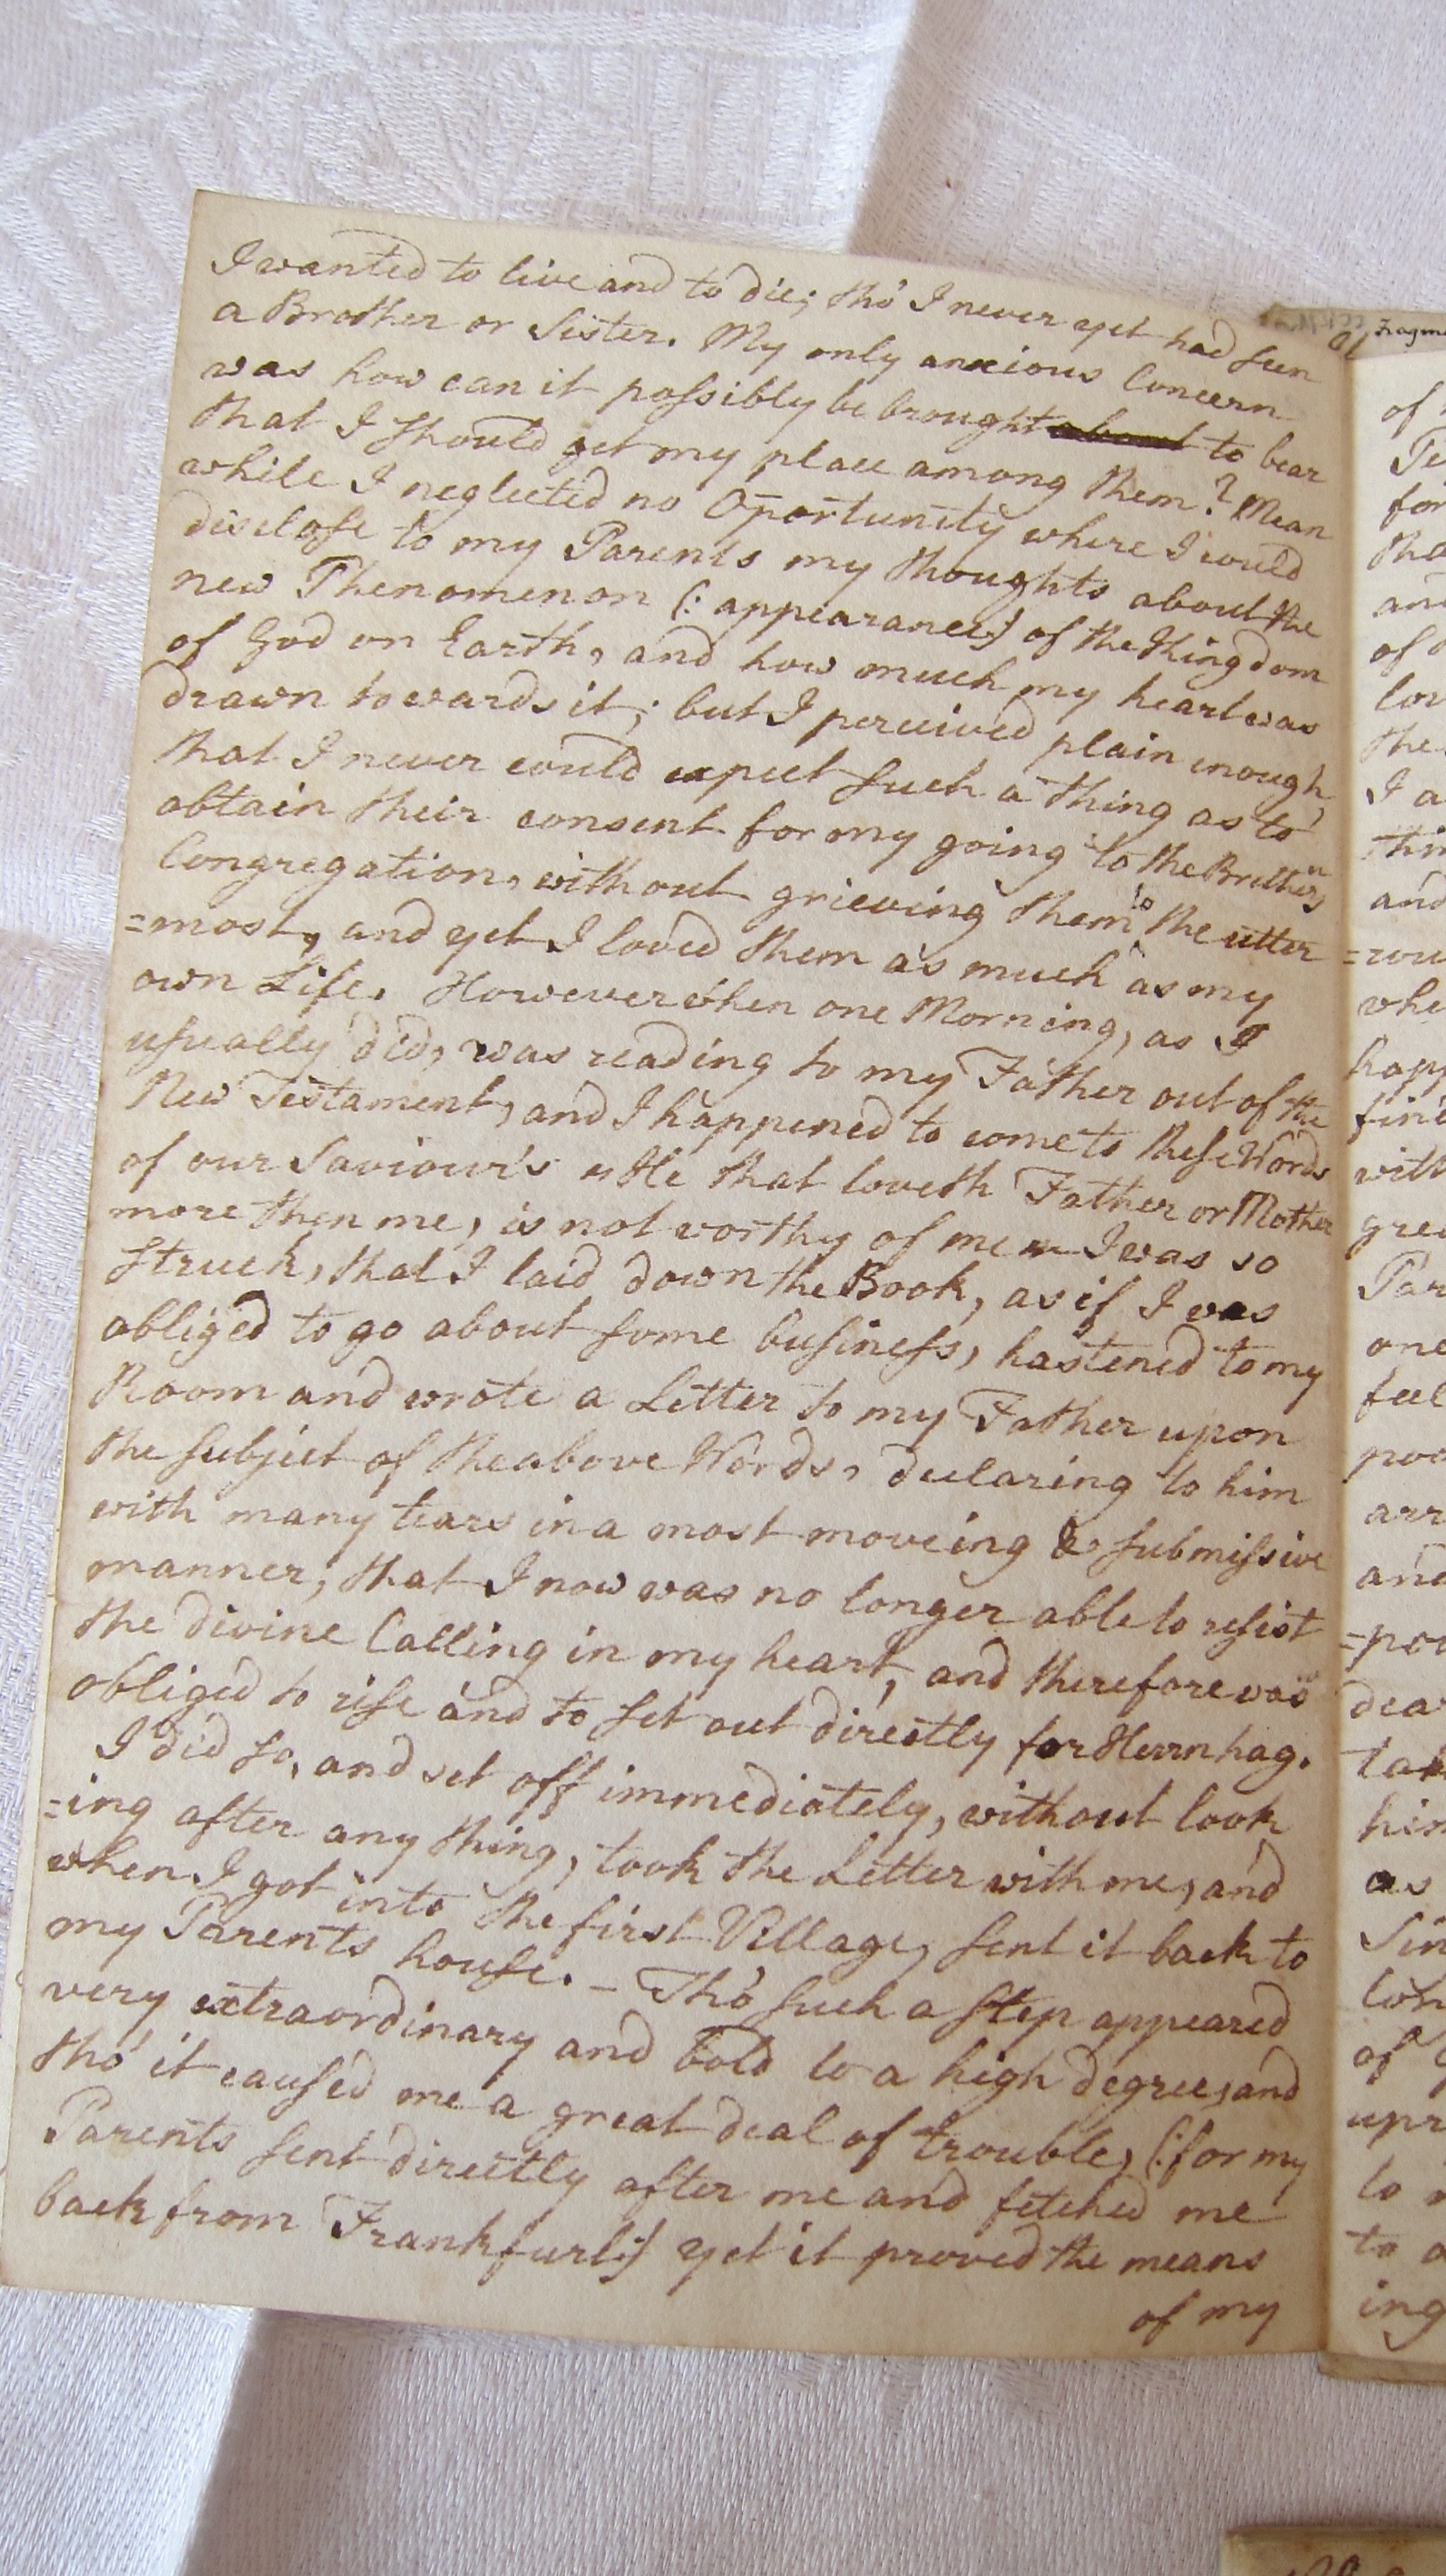 I wanted to live and to die; tho' I never yet had seen
a Brother or Sister. My only anxious Concern
was how can it possibly be brought about to bear
that I should get my place among them? Mean
while I neglected no Oportunity where I could
disclose to my Parents my thoughts about the
new Phenomenon (: appearance:) of the Kingdom
of God on Earth, and how much my heart was
drawn towards it; but I perceived plain enough,
that I never could expect such a thing as to
obtain their consent for my going to the Brethern's
Congregation, without grieving them to the utter
=most, and yet I loved them as much as my
own Life. However when one Morning, as I
usually did, was reading to my Father out of the
New Testament, and I happened to come to these Words
of our Saviour's "He that loveth Father or Mother
more then me, is not worthy of me" I was so
struck, that I laid down the Book, as if I was
obliged to go about some business, hastened to my
Room and wrote a Letter to my Father upon
the subject of the above Words, declaring to him
with many tears in a most moveing & submissive
manner, that I now was no longer able to resist
the divine Calling in my heart, and therefore was
obliged to rise and to set out directly for Herrnhag.
I did so, and set off immediately, without look
=ing after any thing, took the Letter with me, and
when I got into the first Village, sent it back to
my Parents house. – Tho' such a step appeared
very extraordinary and bold to a high degree, and
tho' it caused me a great deal of trouble, (: for my
Parents sent directly after me and fetched me
back from Frankfurt:) yet it proved the means
of my